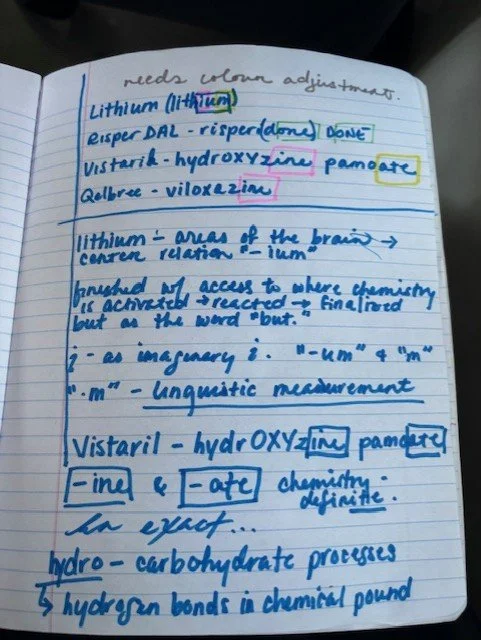 needs colour adjustment.
Lithium (lithium)
RisperDAL - risper(done) DONE
Vistaril - hydrOXYzine pamoate
Qelbree - viloxazine
lithium - areas of the brain →
conzen relation "-ium"
finished w/ access to where chemistry
is activated → reacted → finalized
but as the word "but."
i - as imaginary i. "-um" & "m"
"-m" - linguistic measurement
Vistaril - hydrOXYzine pamoate
-ine & -ate chemistry -
definite.
In exact...
hydro - carbohydrate processes
↳ hydrogen bonds in chemical pound